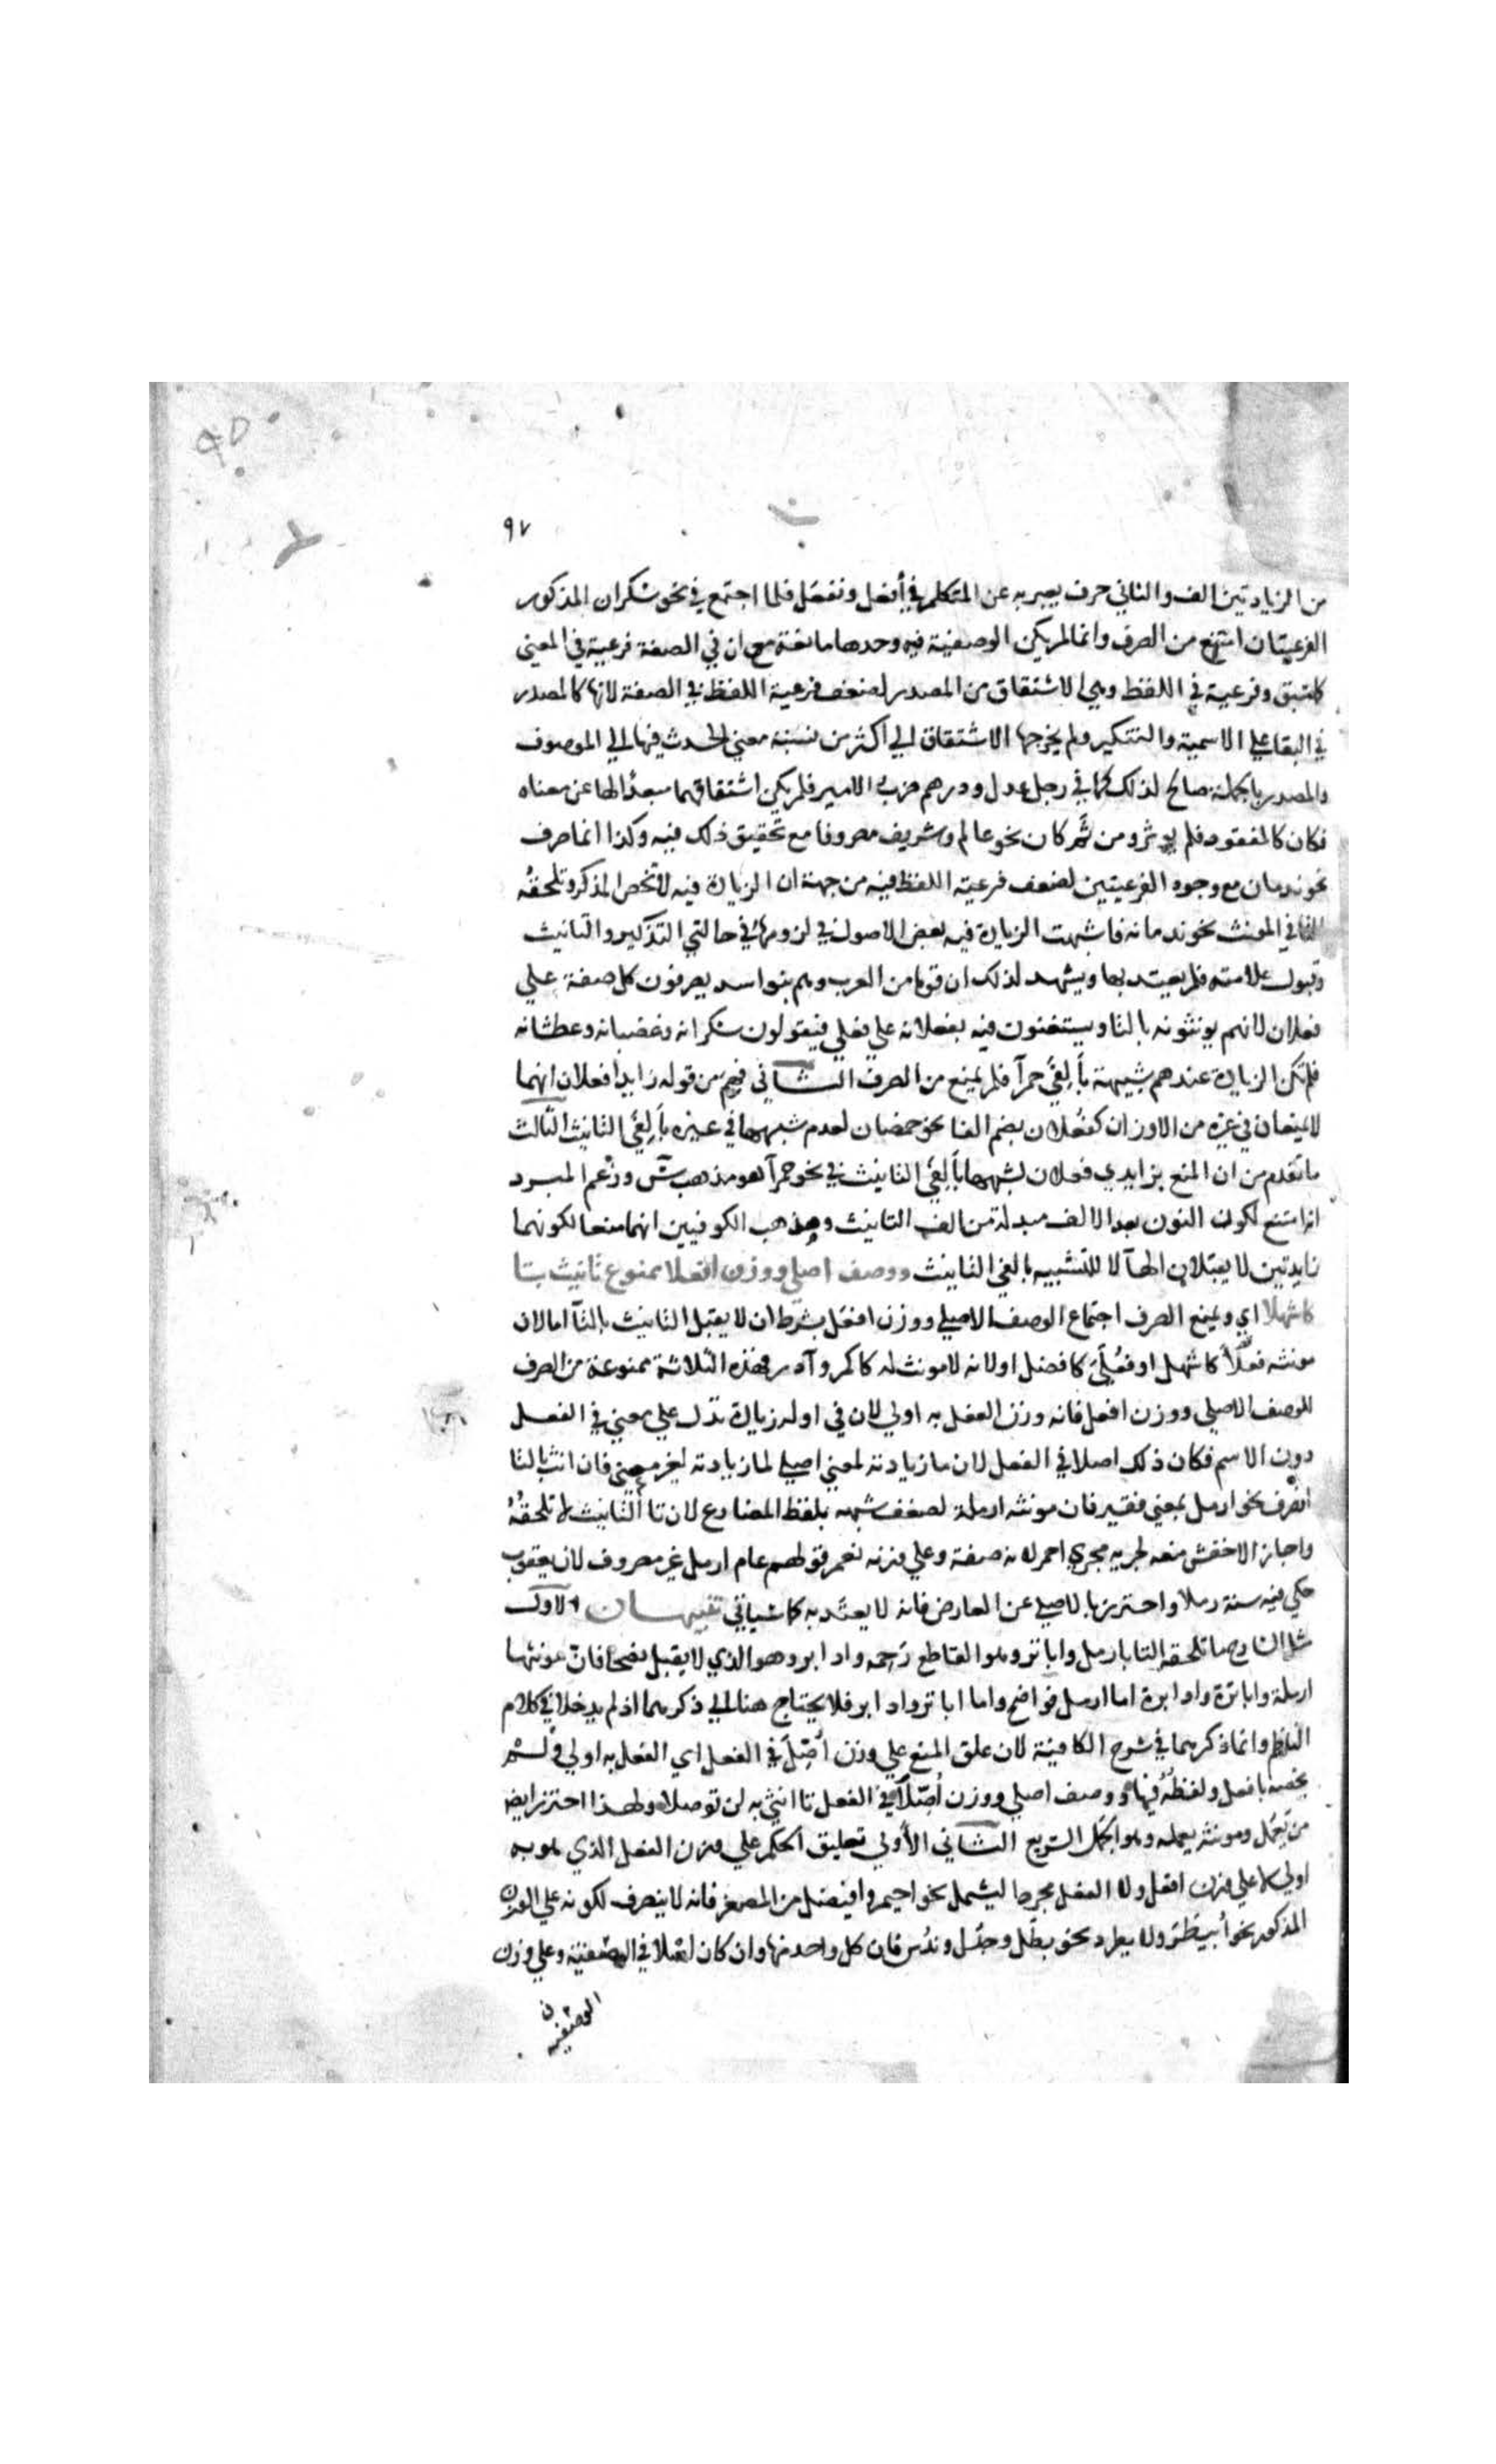 ٩٧
من الزيادتين الف والثاني حرف يعبر به عن المتكلم في أفعل ونفعل فلما اجتمع في نحو سكران المذكور
الفرعيتان امتنع من الصرف وانما لم يكن الوصفية فيه وحدها مانعة مع ان في الصفة فرعية في المعني
كما سبق وفرعية في اللفظ وهي الاشتقاق من المصدر لضعف فرعية اللفظ في الصفة لانها كالمصدر
في البقا علي الاسمية والتنكير ولم يخرجها الاشتقاق الي اكثر من نسبة معني الحدث فيها الي الموصوف
والمصدر بالجملة صالح لذلك كما في رجل عدل ودرهم ضرب الامير فلم يكن اشتقاقها مبعدا لها عن معناه
فكان كالمفقود فلم يوثر ومن ثم كان نحو عالم وشريف مصروفا مع تحقيق ذلك فيه وكذا انما صرف
نحو ندمان مع وجود الفرعيتين لضعف فرعية اللفظ فيه من جهة ان الزيادة فيه لا تخص المذكر وتلحقه
التا في المونث نحو ندمانه فاشبهت الزيادة فيه بعض الاصول في لزومها في حالتي التذكير والتانيث
وقبول علامته فلم يعتد بها ويشهد لذلك ان قوما من العرب وهم بنوا اسد يصرفون كل صفة علي
فعلان لانهم يونثونه بالتا ويستغنون فيه بفعلانه علي فعلي فيقولون سكرانه وغضبانه وعطشانه
فلم تكن الزيادة عندهم شبيهة بألفي حمرآ فلم يمنع من الصرف الثاني فهم من قوله زايدا فعلان انهما
لا يمنعان في غيره من الاوزان كفعلان بضم الفا نحو خمصان لعدم شبههما في غيره بألفي التانيث الثالث
ما تقدم من ان المنع بزايدي فعلان لشبهها بألفي التانيث في نحو حمرآ هو مذهب س وزعم المبرد
انه امتنع لكون النون بعد الالف مبدلة من الف التانيث ومذهب الكوفيين انهما منعا لكونهما
زايدتين لا يقبلان الهآ لا للتشبيه بالفي التانيث ووصف اصلي ووزن افعلا ممنوع تانيث بتا
كاشهلا اي ويمنع الصرف اجتماع الوصف الاصلي ووزن افعل بشرط ان لا يقبل التانيث بالتآ اما لان
مونثه فعلاء كاشهل او فعلي كافضل او لانه لا مونث له كاكمر وآدر فهذه الثلاثة ممنوعة من الصرف
للوصف الاصلي ووزن افعل فانه وزن الفعل به اولي لان في اوله زيادة تدل علي معني في الفعل
دون الاسم فكان ذلك اصلا في الفعل لان ما زيادته لمعني اصل لما زيادته لغير معني فان انث بالتا
انصرف نحو ارمل بمعني فقير فان مونثه ارملة لضعف شبهه بلفظ المضارع لان تا التانيث لا تلحقه
واجاز الاخفش منعه لجريه مجري احمر لانه صفة وعلي وزنه نعم قولهم عام ارمل غير مصروف لان يعقوب
حكي فيه سنة رملا واحترز بالاصلي عن العارض فانه لا يعتد به كما سياتي تنبيهان الاول
مثل الشارح ما تلحقه التا بارمل واباتر وهو القاطع رحمه وادابر وهو الذي لا يقبل نصحا فان مونثها
ارملة واباترة وادابرة اما ارمل فواضح واما اباتر وادابر فلا يحتاج هنا الي ذكرهما اذ لم يدخلا في كلام
الناظم وانما ذكرهما في شرح الكافية لان علق المنع علي وزن أصل في الفعل اي الفعل به اولي ولم
يخصه بافعل ولفظه فيها ووصف اصلي ووزن أصلا في الفعل تا انثي به لن توصلا ولهذا احترز ايضا
من يعمل ومونثه يعمله وهو الجمل السريع الثاني الأولي تعليق الحكم علي وزن الفعل الذي هو به
اولي لا علي وزن افعل ولا الفعل مجردا ليشمل نحو احيمر وافيضل من المصغر فانه لا ينصرف لكونه علي الوزن
المذكور نحو أبيطر ولا يعترد نحو بطل وجدل وندس فان كل واحد منها وان كان اصلا في الوصفية وعلي وزن